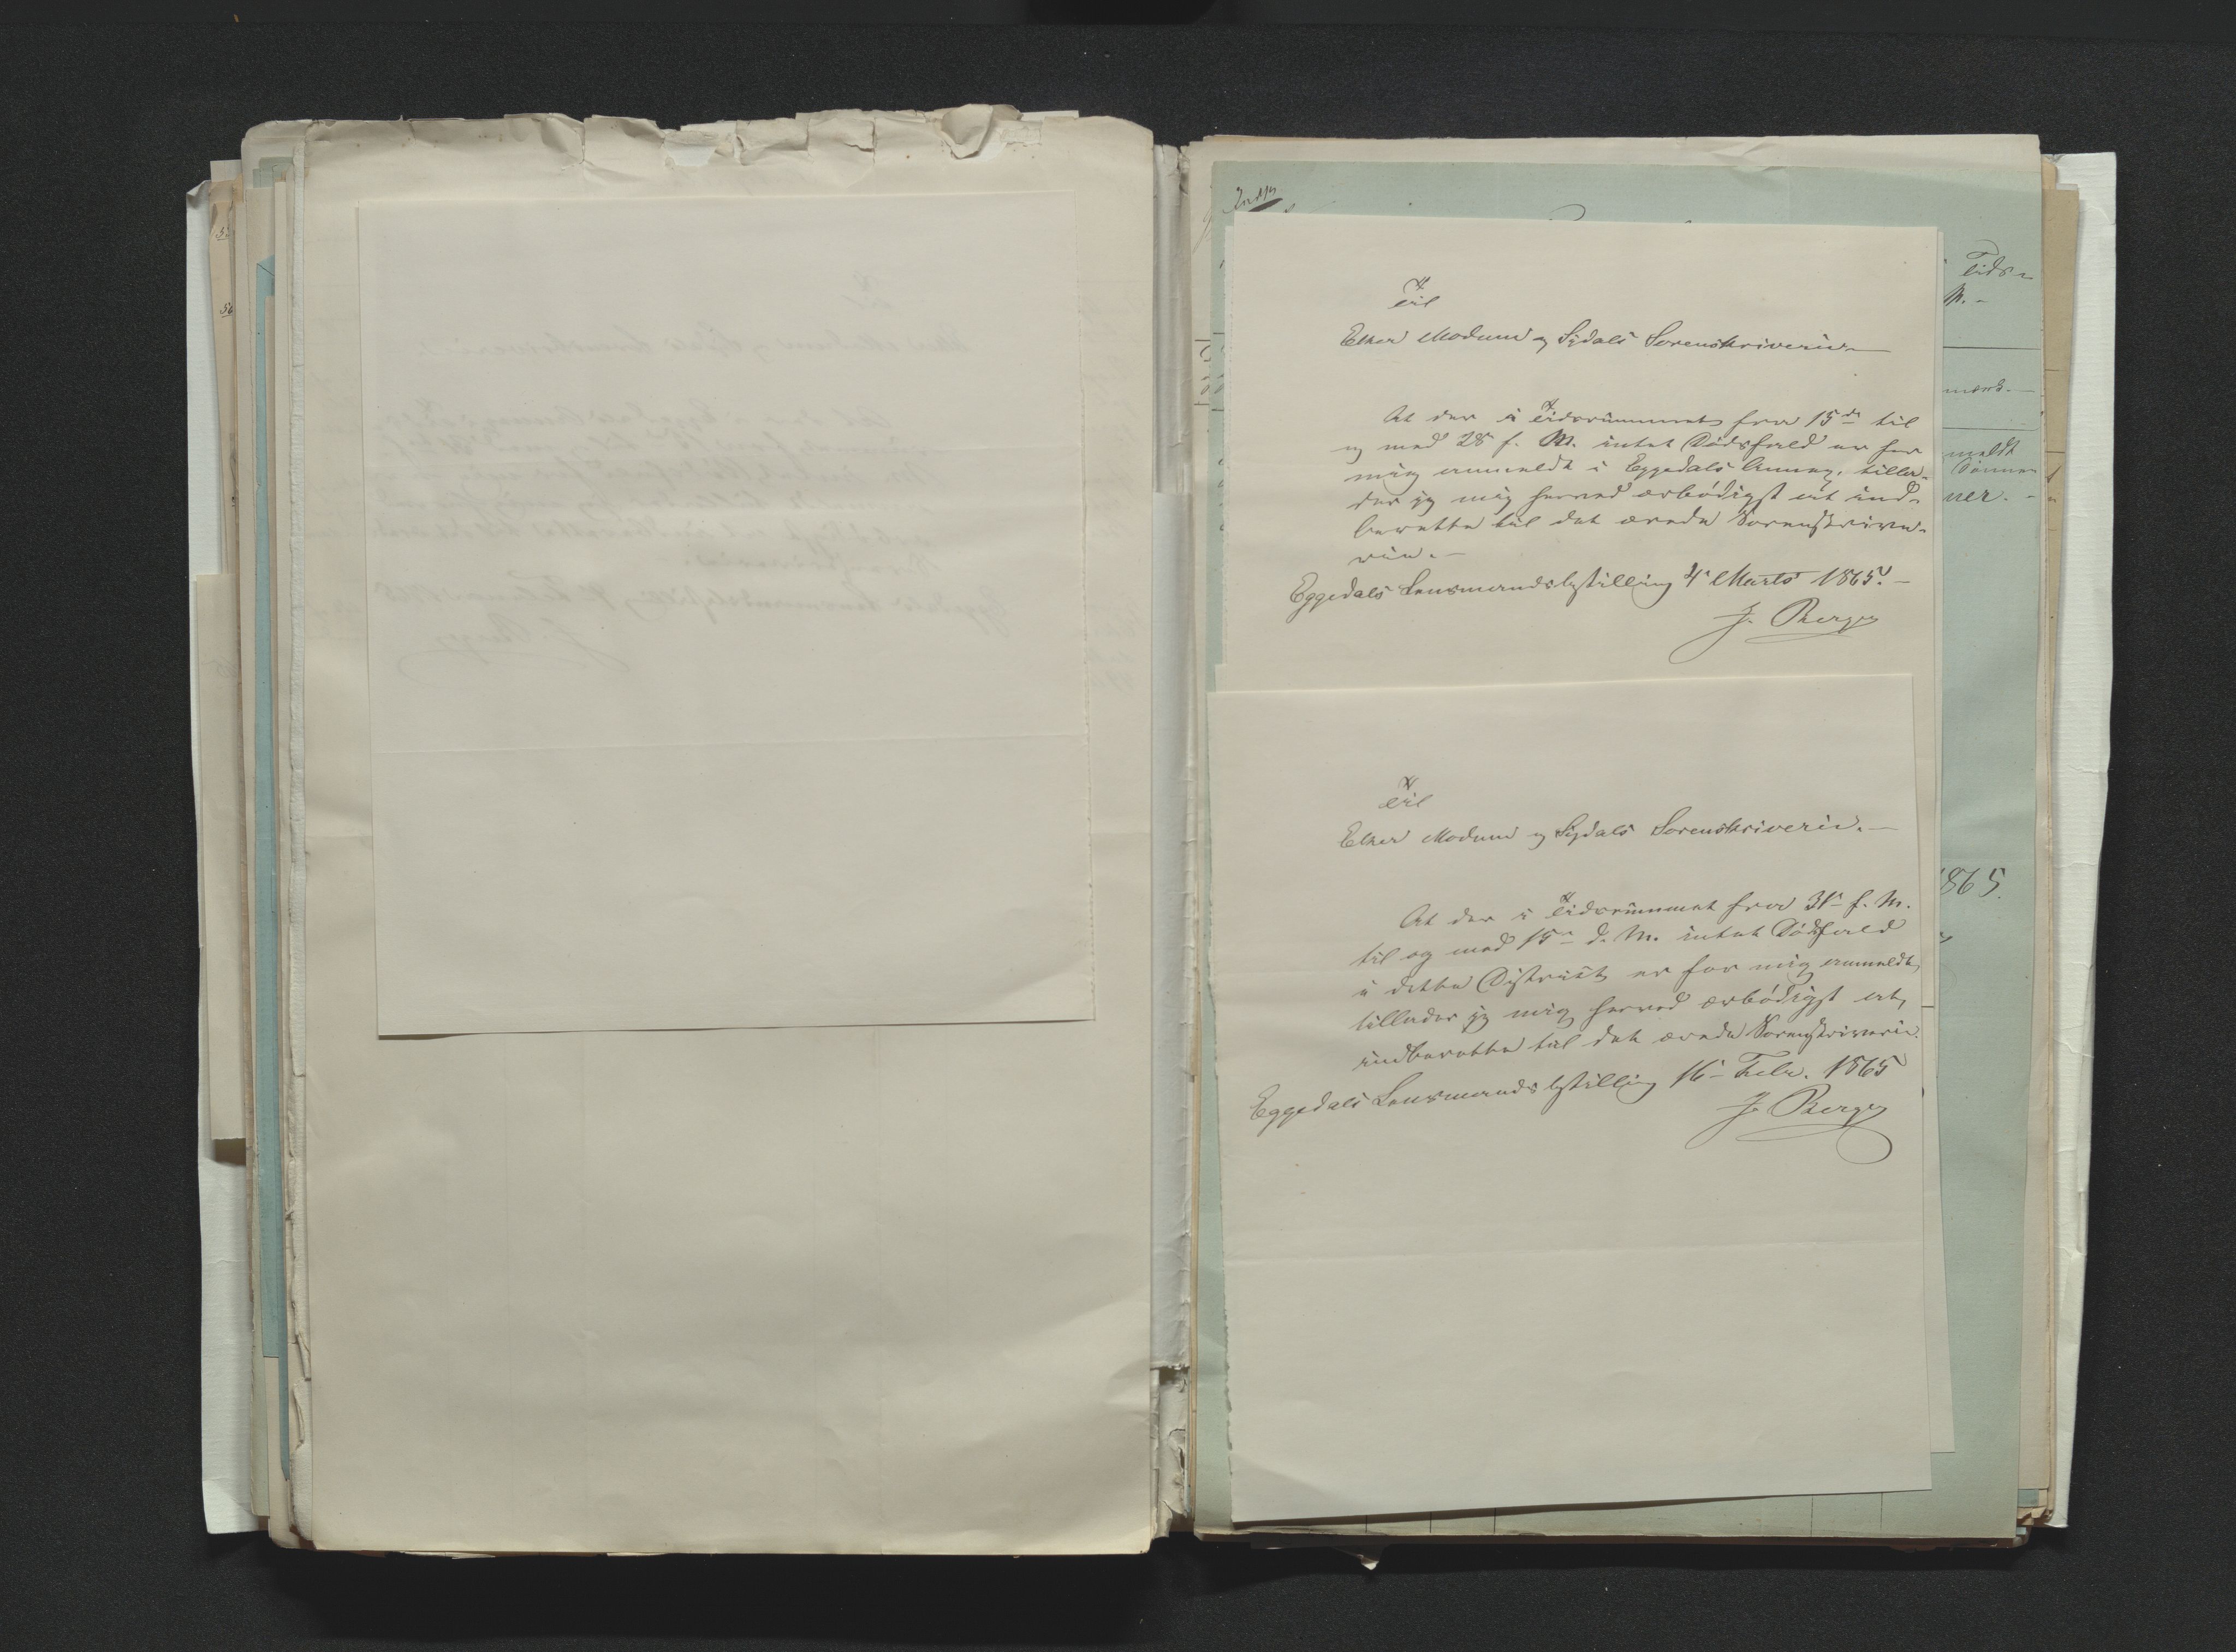 Til
Eker Modum og Sigdals Sorenskriveri.
At der i Tidsrummet fra 15de til
og med 28 f. M. intet Dødsfald er for
mig anmeldt i Eggedals Annex, tilla-
der jeg mig herved ærbødigst at ind-
berette til det ærede Sorenskrive-
rie.
Eggedals Lensmandsbestilling 4 Marts 1865.
J. Berge
Til
Eker Modum og Sigdals Sorenskriveri.
At der i Tidsrummet fra 31 f. M.
til og med 15 d. M. intet Dødsfald
i dette District er for mig anmeldt,
tillader jeg mig herved ærbødigst at
indberette til det ærede Sorenskriveri.
Eggedals Lensmandsbestilling 16 Febr. 1865
J. Berge
Tids-
M.
meldt
ner.
1865.